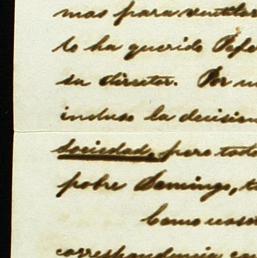 mas para ventilar
lo ha querido Pepe
su director. Por
incluso la decision
sociedad, pero todo
pobre Domingo,
Como
correspondencia